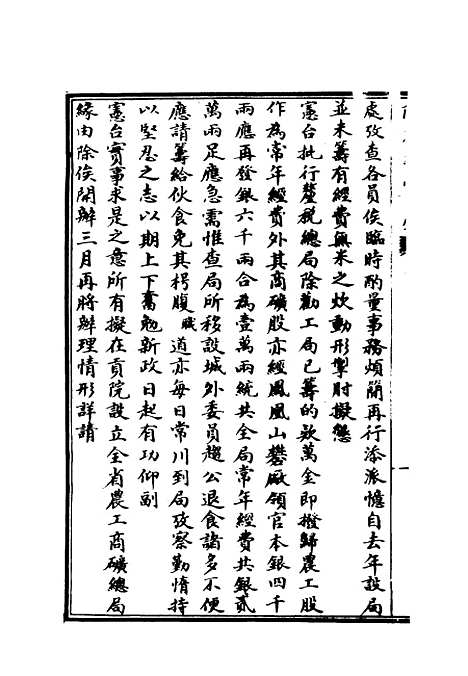 處攷查各員俟臨時酌量事務煩簡再行添派憶自去年設局
並未籌有經費無米之炊動形掣肘擬懇
憲台批行釐稅總局除勸工局已籌的款萬金即撥歸農工股
作為常年經費外其商礦股亦經鳳凰山礬廠領官本銀四千
兩應再發銀六千兩合為壹萬兩統共全局常年經費共銀貳
萬兩足應急需惟查局所移設城外委員趨公退食諸多不便
應請籌給伙食免其枵腹職道亦每日常川到局攷察勤惰持
以堅忍之志以期上下奮勉新政日起有功仰副
憲台實事求是之意所有擬在貢院設立全省農工商礦總局
緣由除俟開辦三月再將辦理情形詳請